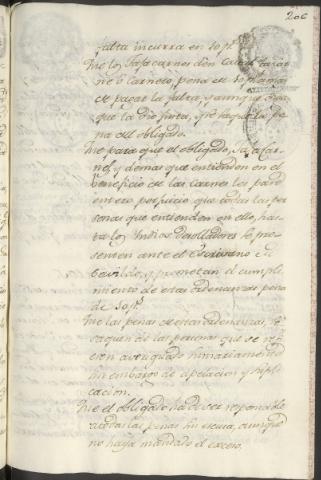 206
falta incurra en 10 p.s
Que los Tasajeros den
ne o Carnero, pena de
de pagar la falta, y aunque diga
que la dio justa, y se saque la pe
na del obligado.
Que para que el obligado,
y demas que entienden en el
beneficio de las Carnes
entero perjuicio que todas las per
sonas que entienden en ello, has
ta los Indios Desolladores se pre
senten ante el Escrivano de
Cavildo, y prometan el cumpli
miento de estas ordenanzas pena
de 50 p.s
Que las penas de estas ordenanzas, se
saquen de las personas que se
averiguado sumariamente
sin embargo de apelacion y supli
cacion.
Que el obligado ha de ser responsable
a todas las penas sin escusa, aunque
no haya mandado el exceso.